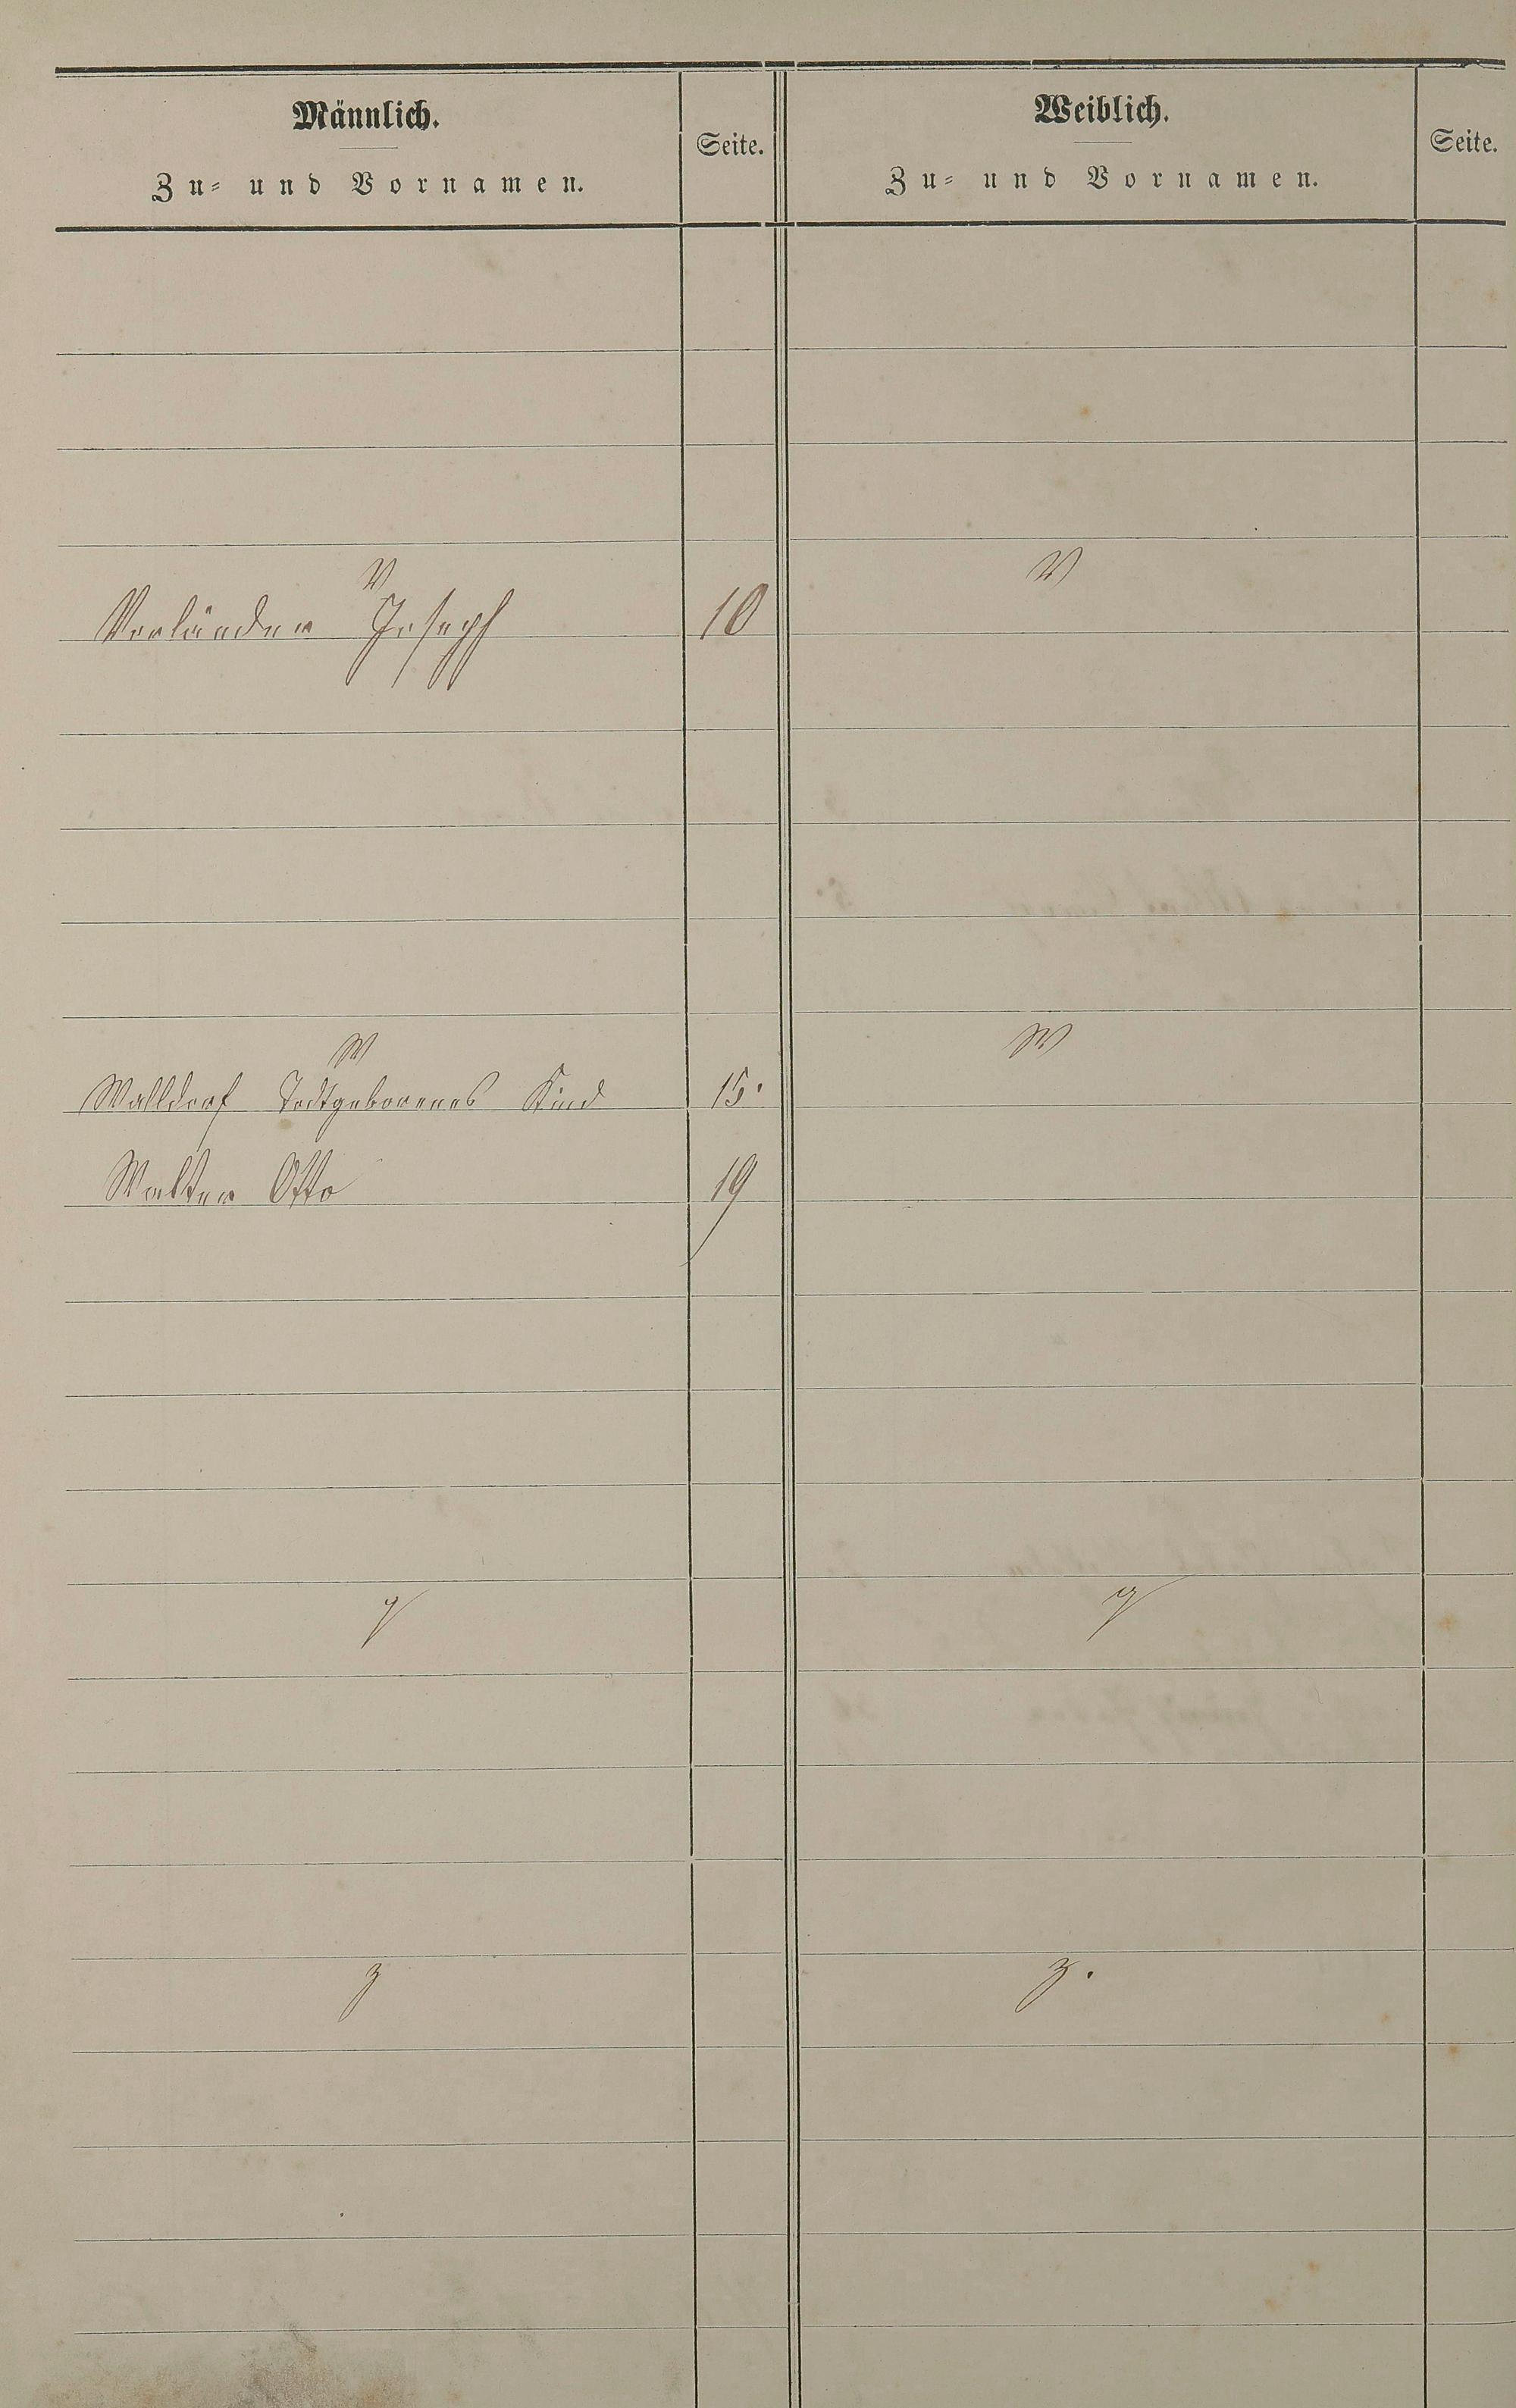 Männlich.
Zu- und Vornamen.
Seite.
Weiblich.
Zu- und Vornamen.
Seite.
V
V
Vorländer Joseph 10
W
W
Walldorf Todtgeborenes Kind 15.
Walter Otto 19
y
y
z
z.